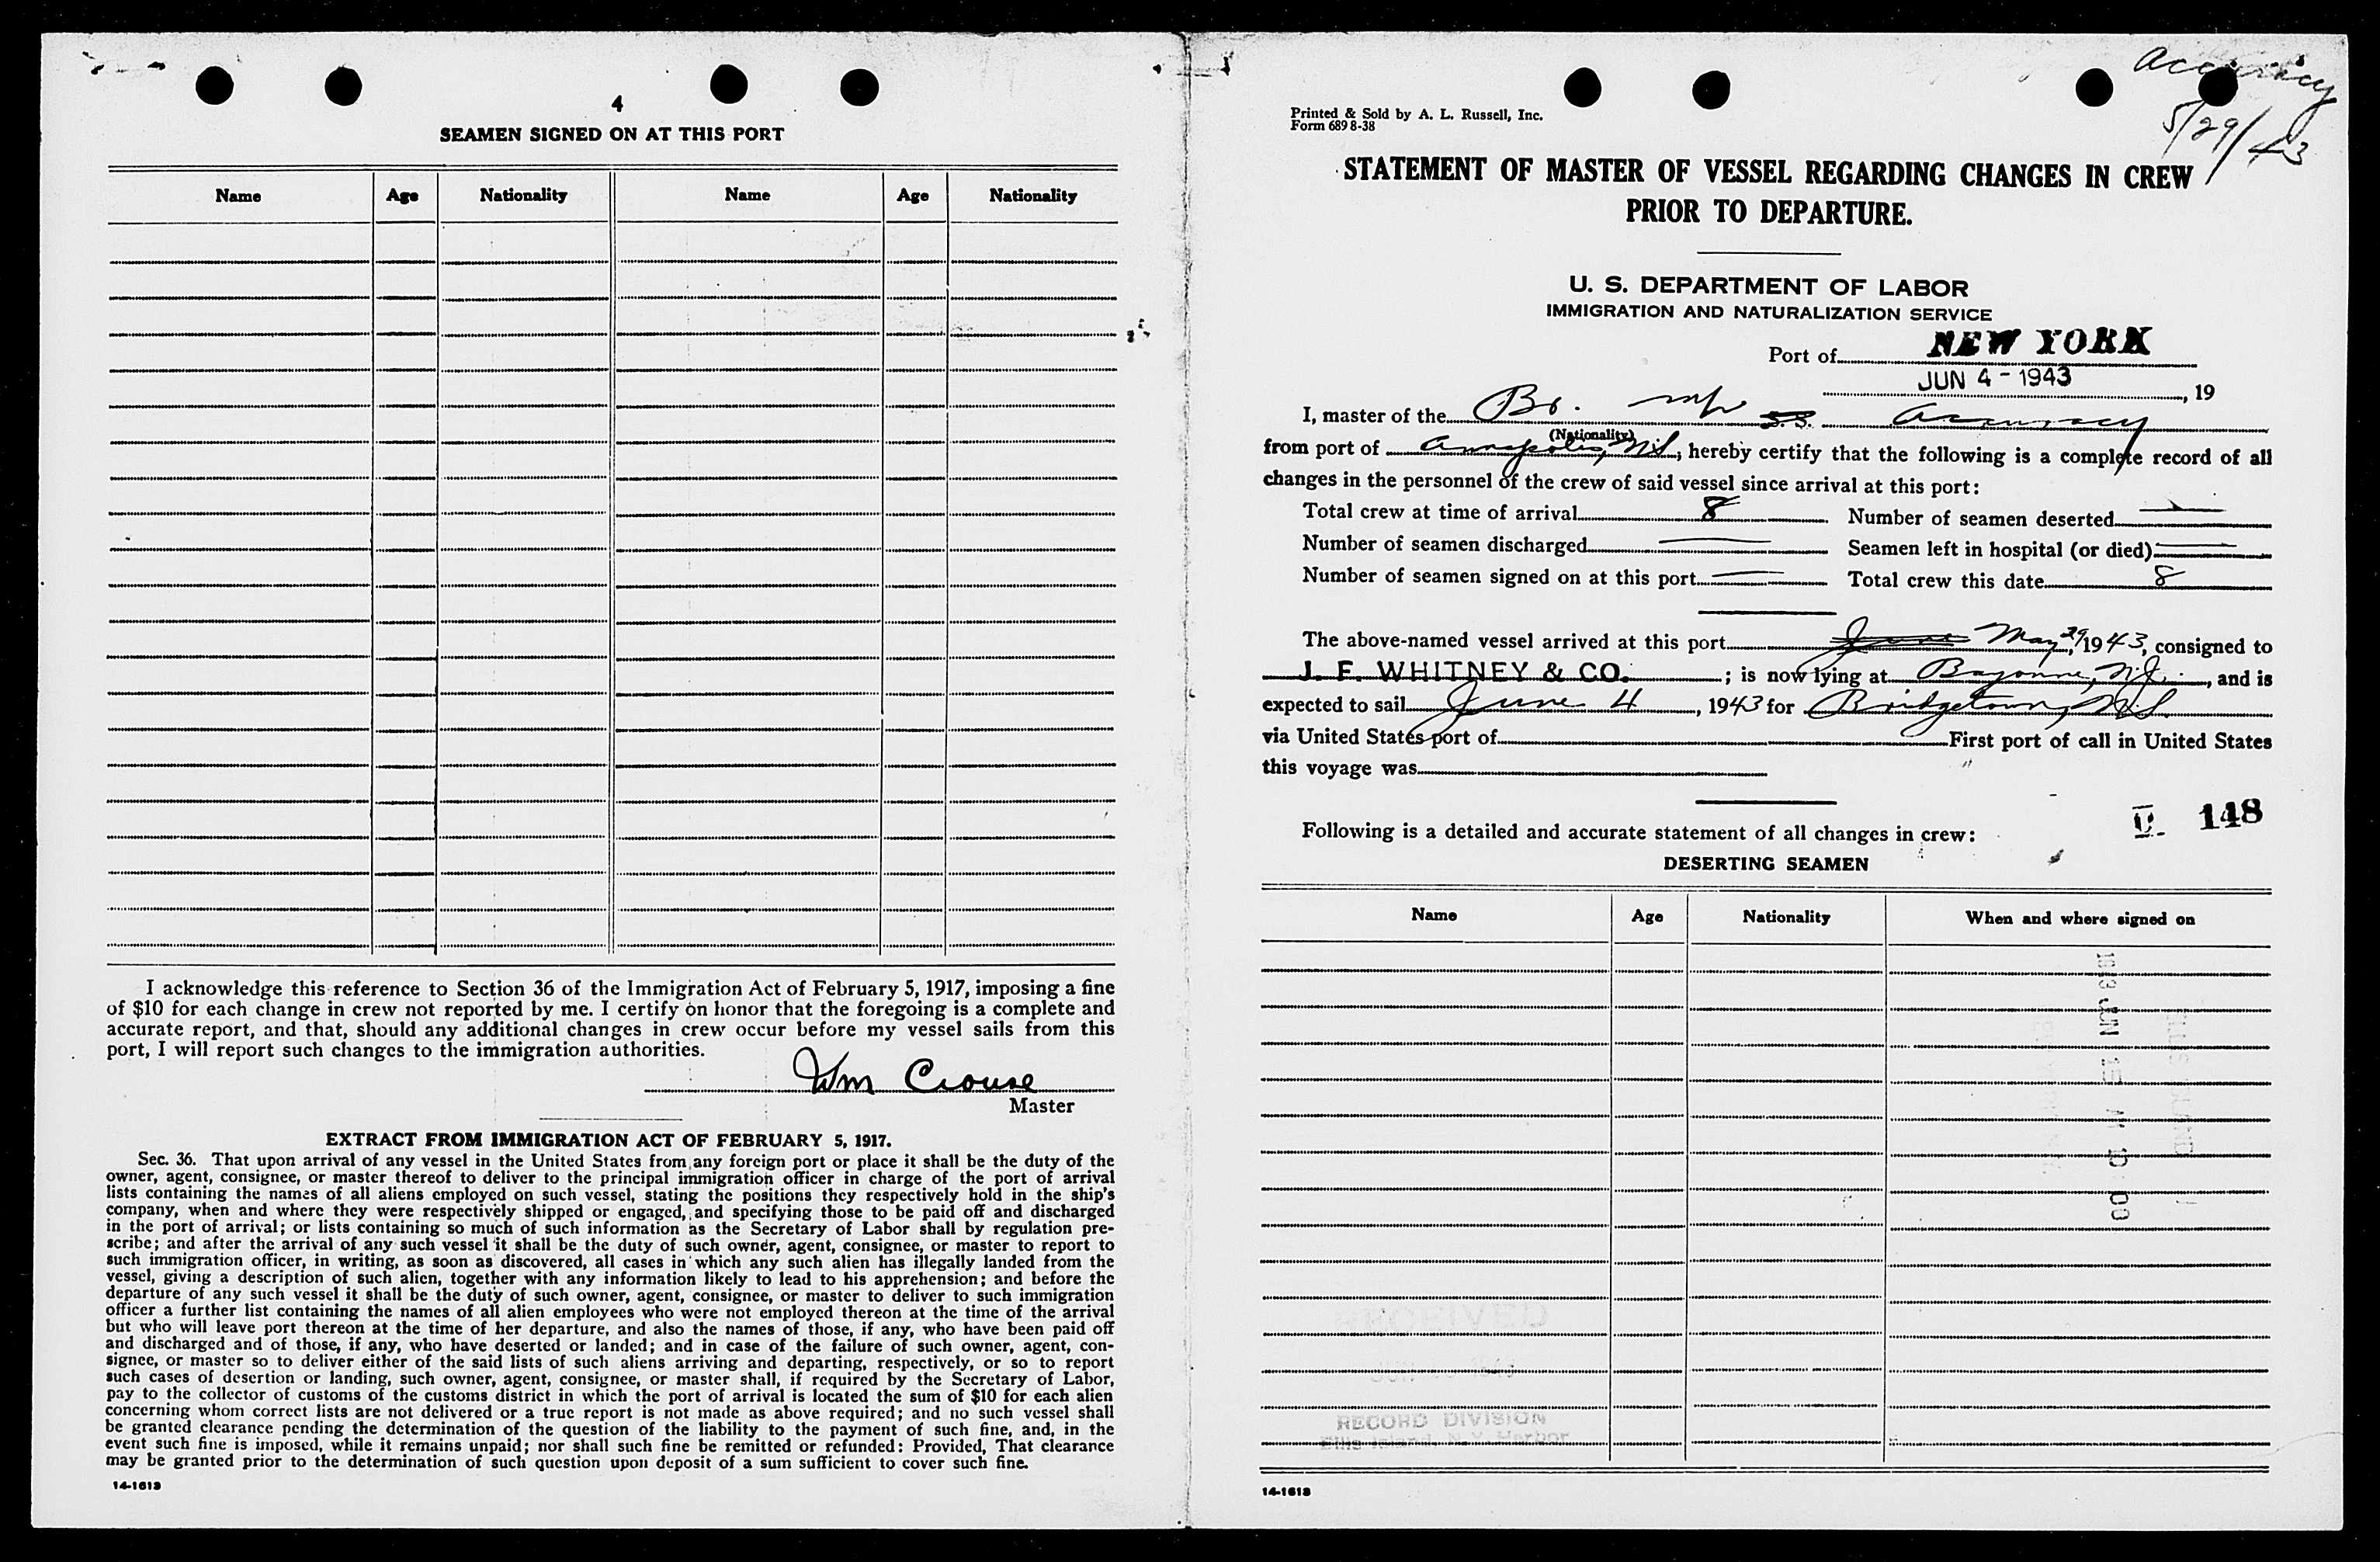 4
SEAMEN SIGNED ON AT THIS PORT
Name Age Nationality Name Age Nationality
I acknowledge this reference to Section 36 of the Immigration Act of February 5, 1917, imposing a fine
of $10 for each change in crew not reported by me. I certify on honor that the foregoing is a complete and
accurate report, and that, should any additional changes in crew occur before my vessel sails from this
port, I will report such changes to the immigration authorities.
Wm Crouse
Master
EXTRACT FROM IMMIGRATION ACT OF FEBRUARY 5, 1917.
Sec. 36. That upon arrival of any vessel in the United States from any foreign port or place it shall be the duty of the
owner, agent, consignee, or master thereof to deliver to the principal immigration officer in charge of the port of arrival
lists containing the names of all aliens employed on such vessel, stating the positions they respectively hold in the ship's
company, when and where they were respectively shipped or engaged, and specifying those to be paid off and discharged
in the port of arrival; or lists containing so much of such information as the Secretary of Labor shall by regulation pre-
scribe; and after the arrival of any such vessel it shall be the duty of such owner, agent, consignee, or master to report to
such immigration officer, in writing, as soon as discovered, all cases in which any such alien has illegally landed from the
vessel, giving a description of such alien, together with any information likely to lead to his apprehension; and before the
departure of any such vessel it shall be the duty of such owner, agent, consignee, or master to deliver to such immigration
officer a further list containing the names of all alien employees who were not employed thereon at the time of the arrival
but who will leave port thereon at the time of her departure, and also the names of those, if any, who have been paid off
and discharged and of those, if any, who have deserted or landed; and in case of the failure of such owner, agent, con-
signee, or master so to deliver either of the said lists of such aliens arriving and departing, respectively, or so to report
such cases of desertion or landing, such owner, agent, consignee, or master shall, if required by the Secretary of Labor,
pay to the collector of customs of the customs district in which the port of arrival is located the sum of $10 for each alien
concerning whom correct lists are not delivered or a true report is not made as above required; and no such vessel shall
be granted clearance pending the determination of the question of the liability to the payment of such fine, and, in the
event such fine is imposed, while it remains unpaid; nor shall such fine be remitted or refunded: Provided, That clearance
may be granted prior to the determination of such question upon deposit of a sum sufficient to cover such fine.
14-1613
Accuracy
5/29/43
Printed & Sold by A. L. Russell, Inc.
Form 689 8-38
STATEMENT OF MASTER OF VESSEL REGARDING CHANGES IN CREW
PRIOR TO DEPARTURE.
U. S. DEPARTMENT OF LABOR
IMMIGRATION AND NATURALIZATION SERVICE
Port of NEW YORK
JUN 4 - 1943, 19
I, master of the Br. S.S. Accuracy
(Nationality)
from port of Annapolis, N.S., hereby certify that the following is a complete record of all
changes in the personnel of the crew of said vessel since arrival at this port:
Total crew at time of arrival 8 Number of seamen deserted —
Number of seamen discharged — Seamen left in hospital (or died) —
Number of seamen signed on at this port — Total crew this date 8
The above-named vessel arrived at this port June May 29, 1943, consigned to
J. F. WHITNEY & CO. ; is now lying at Bayonne, N.J., and is
expected to sail June 4, 1943 for Bridgetown, N.S.
via United States port of First port of call in United States
this voyage was
148
Following is a detailed and accurate statement of all changes in crew:
DESERTING SEAMEN
Name Age Nationality When and where signed on
1943 JUN 15 AM 10 00
RECEIVED
RECORD DIVISION
Ellis Island, N. Y. Harbor
14-1613